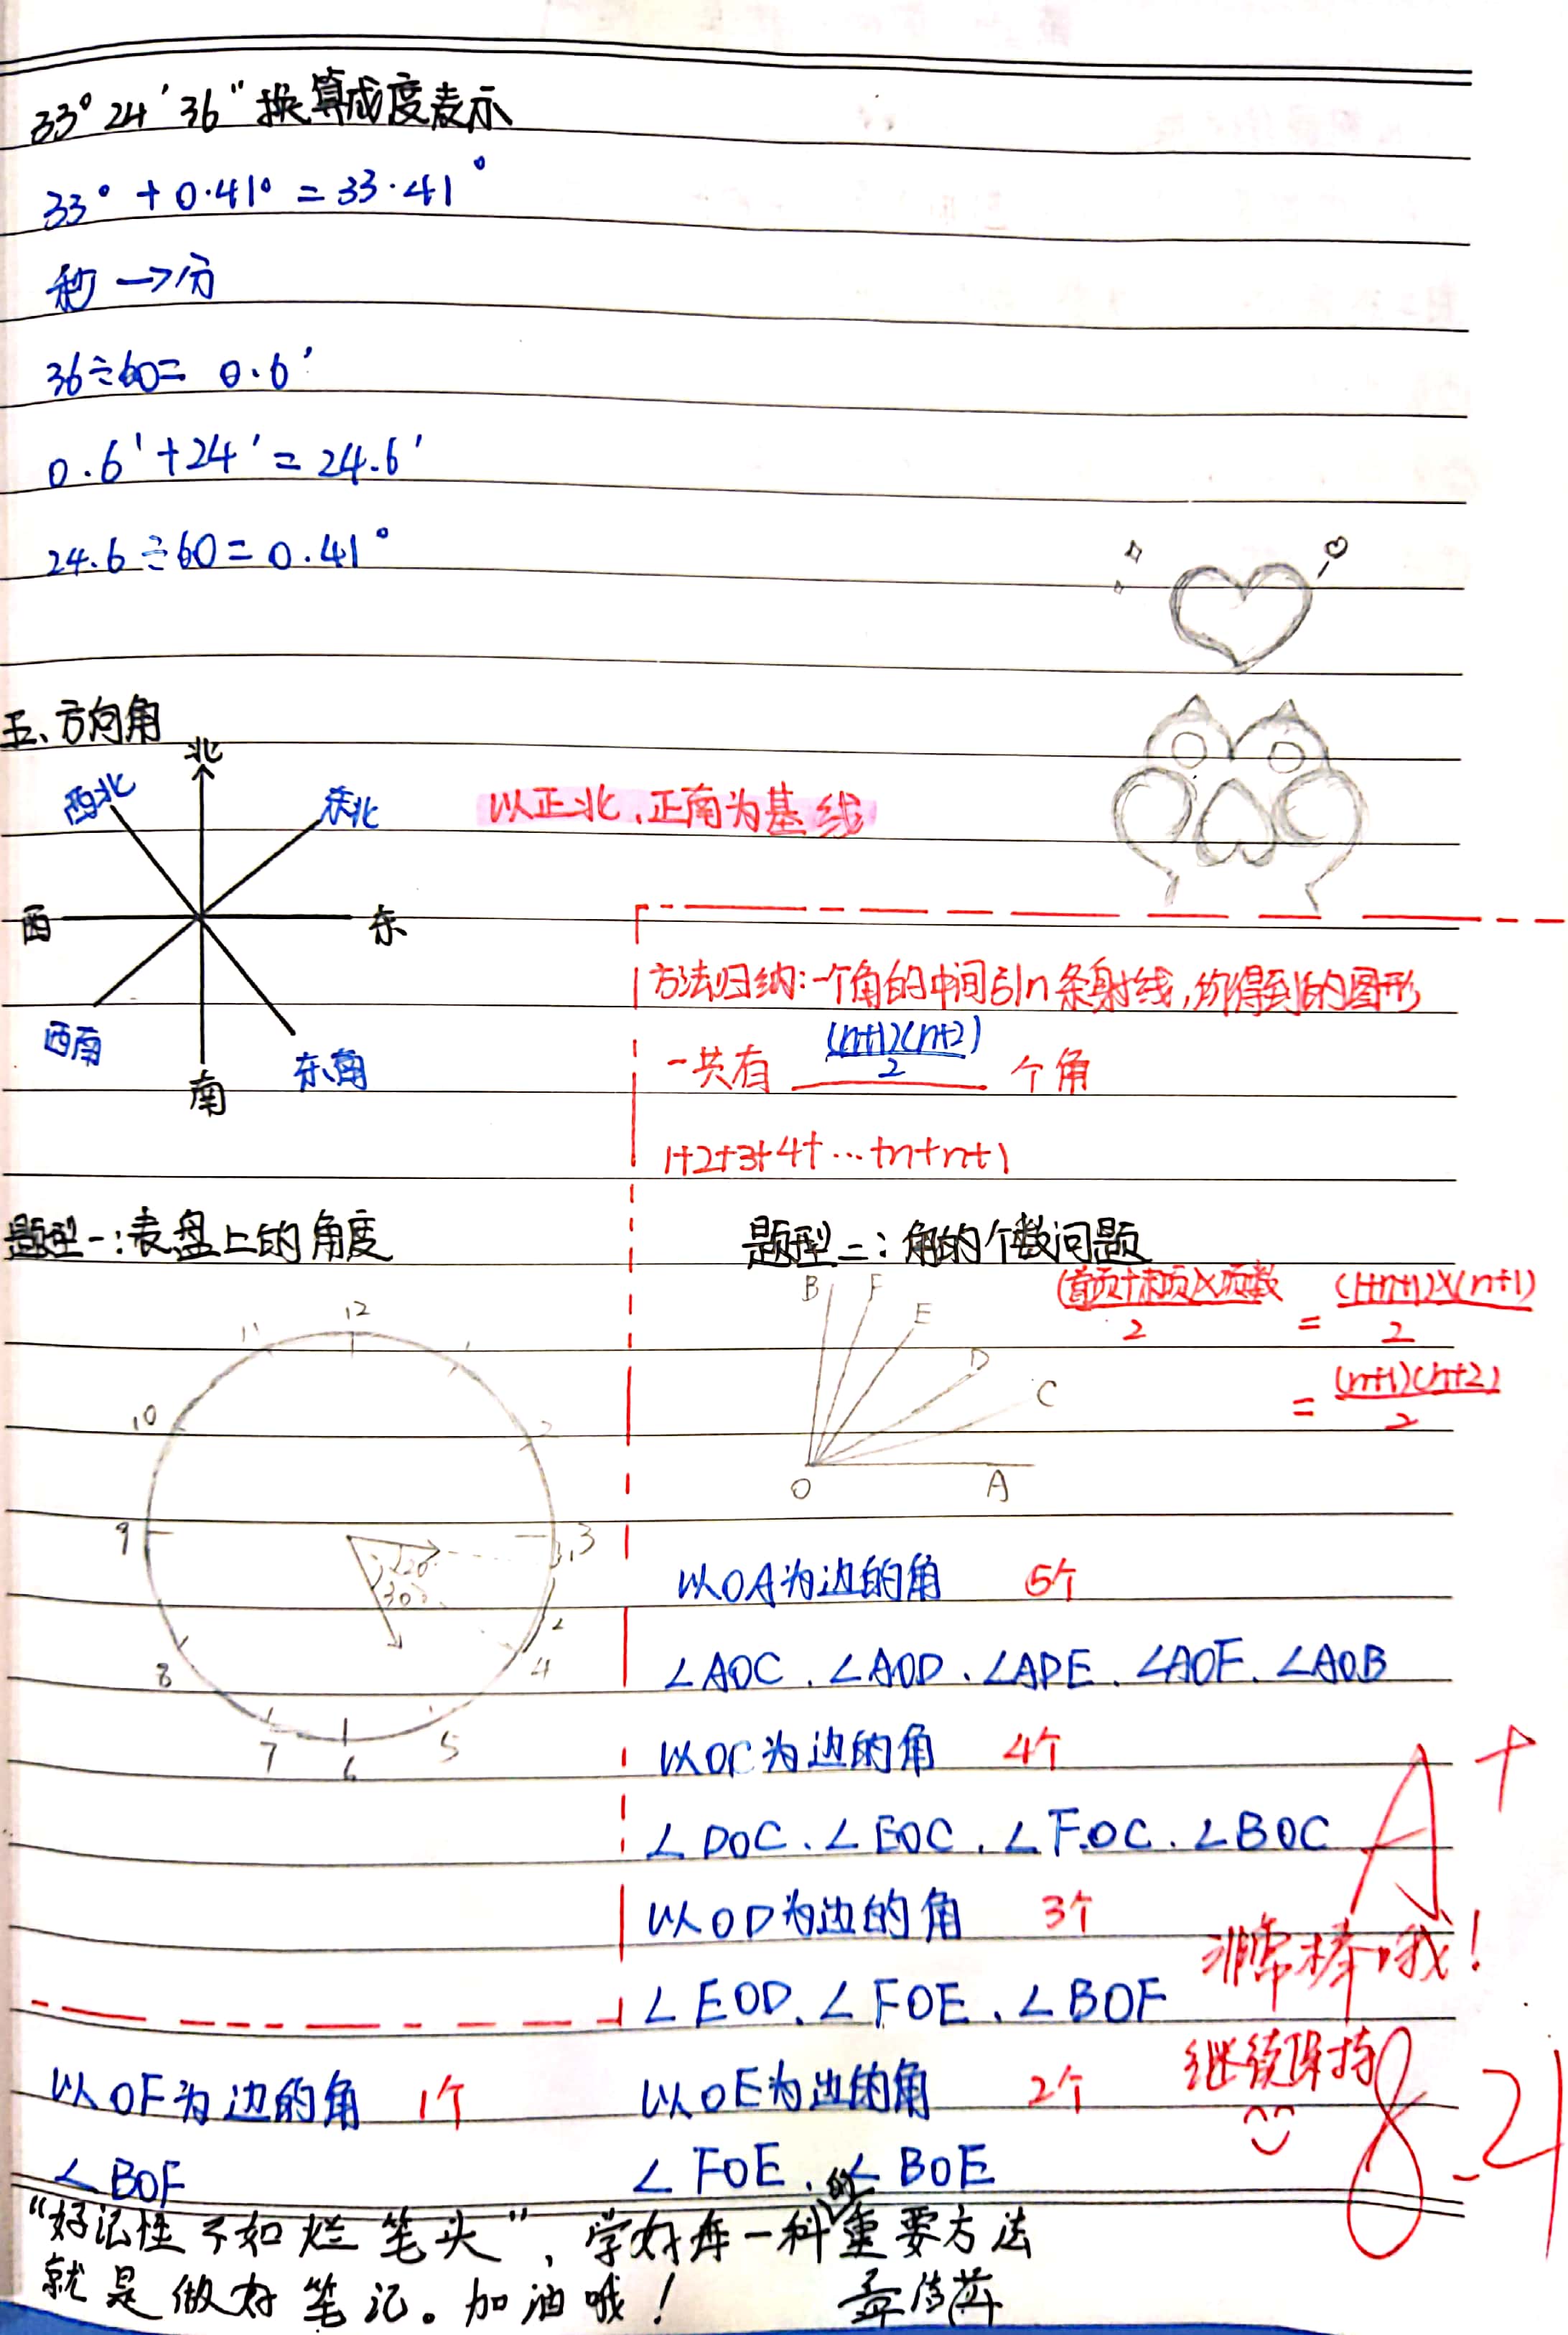 33°24′36″换算成度表示
33°+0.41°=33.41°
秒→分
36÷60=0.6′
0.6′+24′=24.6′
24.6÷60=0.41°
五、方向角
北
西北
东北
以正北、正南为基线
西
东
西南
东南
南
方法归纳:一个角的中间引n条射线,所得到的图形
一共有 (n+1)(n+2)/2 个角
1+2+3+4+…+n+n+1
题型一:表盘上的角度
12
11
10
2
9
3
8
4
7
6
5
20°
30°
题型二:角的个数问题
(首项+末项)×项数/2 = (1+n+1)×(n+1)/2
= (n+1)(n+2)/2
B F E D C
O A
以OA为边的角 5个
∠AOC、∠AOD、∠ADE、∠AOF、∠AOB
以OC为边的角 4个
∠DOC、∠EOC、∠FOC、∠BOC
以OD为边的角 3个
∠EOD、∠FOE、∠BOF
以OE为边的角 2个
∠FOE、∠BOE
以OF为边的角 1个
∠BOF
A+
非常棒哦!
继续保持
8.21
“好记性不如烂笔头”,学好每一科的重要方法
就是做好笔记。加油哦!